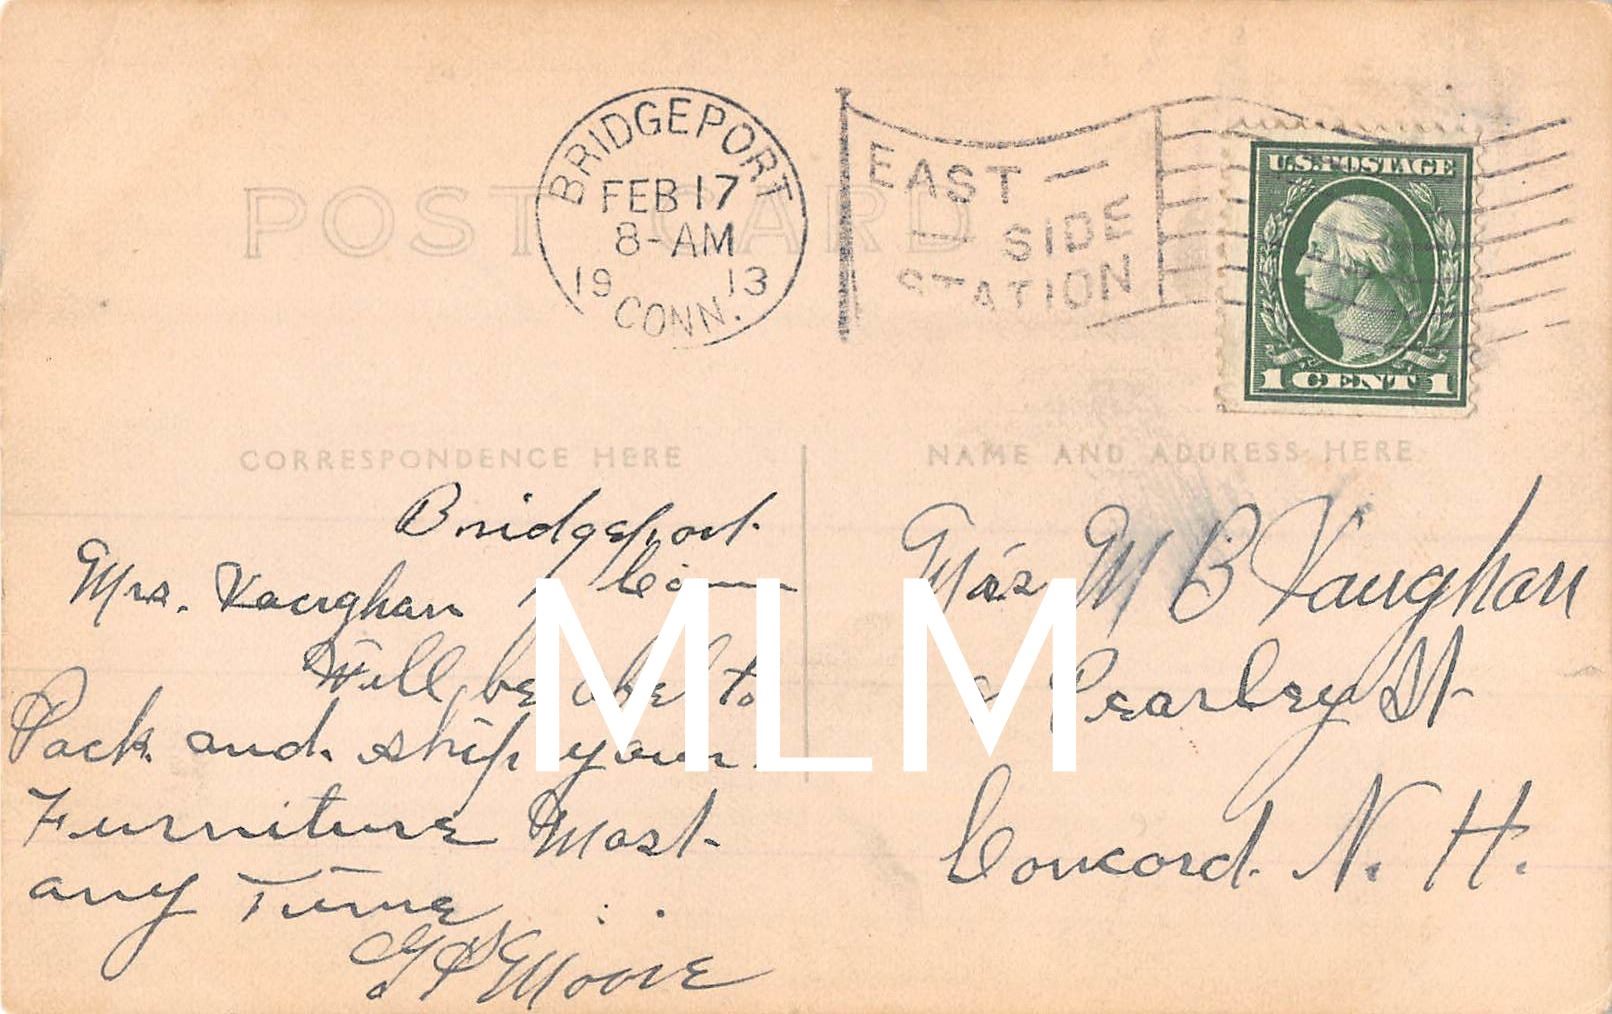 POST CARD
BRIDGEPORT
FEB 17
8-AM
1913
CONN.
EAST
SIDE
STATION
U.S. POSTAGE
1 CENT 1
CORRESPONDENCE HERE
Bridgeport
Conn
Mrs. Vaughan
Will be able to
Pack and ship your
Furniture Most
any Time
Moore
NAME AND ADDRESS HERE
Mrs M B Vaughan
Pearley St
Concord N. H.
MLM